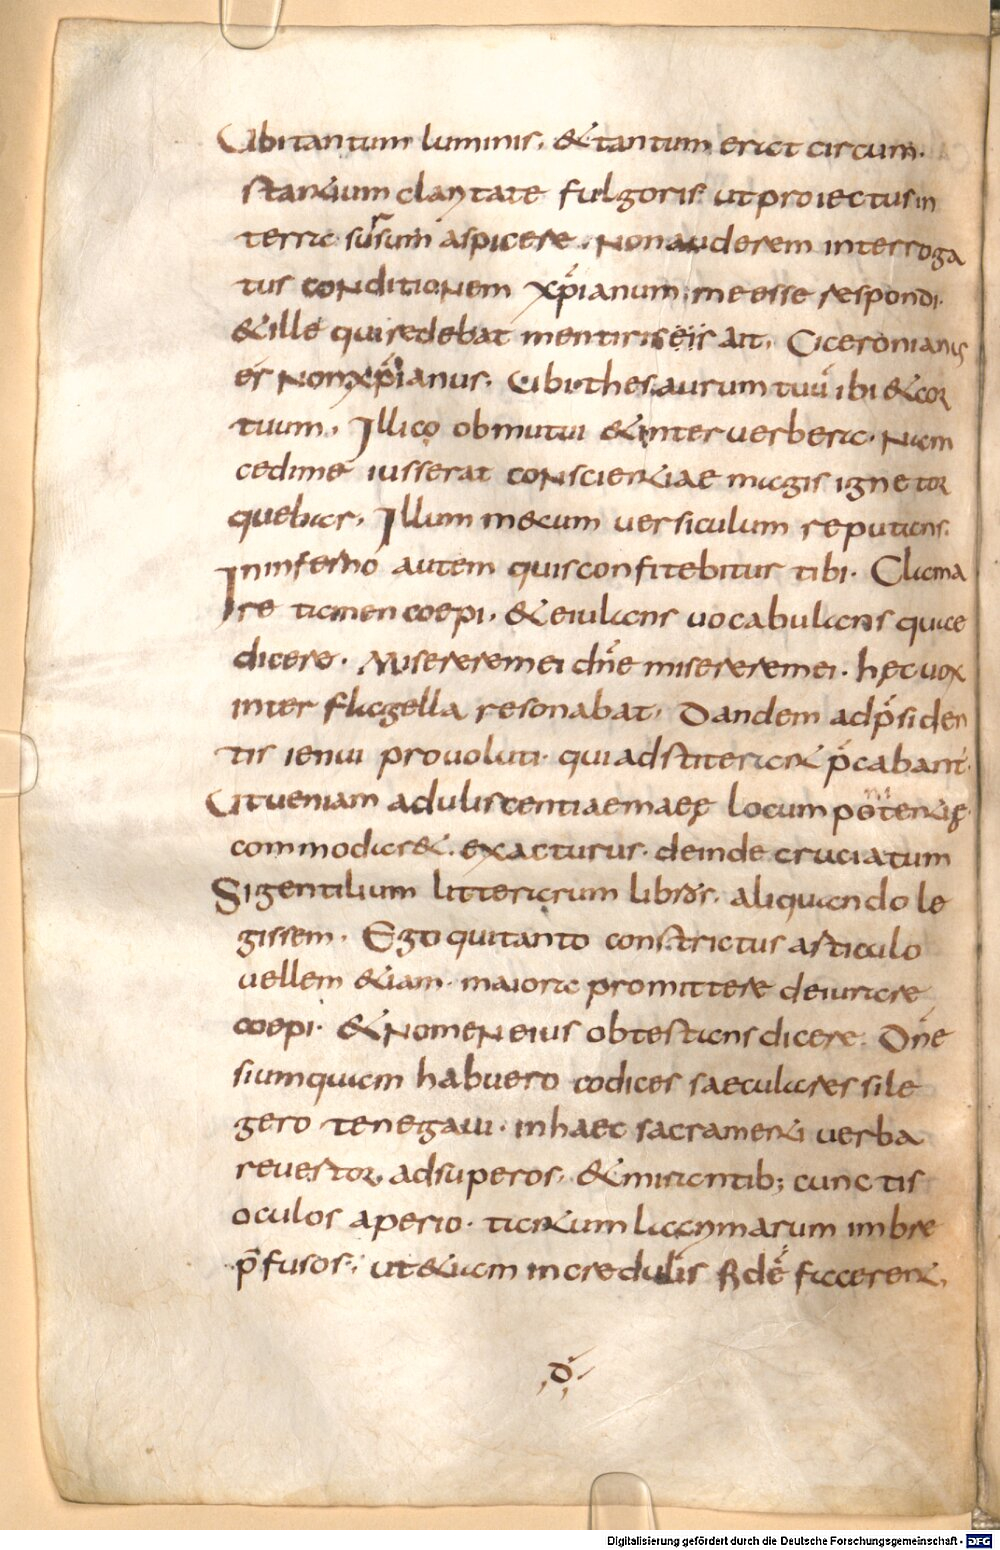 Ubi tantum luminis. & tantum erat circum.
stantium claritate fulgoris. ut proiectus in
terra sursum aspicere. Non auderem interroga
tus conditionem xp̄ianum me esse respondi.
& ille qui sedebat mentiris eis ait. Ciceronianus
es Non xp̄ianus. Ubi thesaurum tuū ibi & cor
tuum. Illico obmutui & inter verbera. Nam
cedi me iusserat conscientiae magis igne tor
quebar. Illum mecum versiculum reputans.
In inferno autem quis confitebitur tibi. Clama
re tamen coepi. & eiulans vocabulans quae
dicere. Miserere mei dn̄e miserere mei. hęc vox
inter flagella resonabat. Dandem ad p̄siden
tis ienui provoluti. qui adstiterant p̄cabant.
Ut veniam aduliscentiae maeę locum pęnitentię
commodaret. exacturus. deinde cruciatum
Si gentilium litterarum libros. aliquando le
gissem. Ego qui tanto constrictus articulo
vellem &iam. maiora promittere deiurare
coepi. & Nomen eius obtestans dicere. Dn̄e
si umquam habuero codices saeculares si le
gero te negavi. in haec sacramenti verba
revestor. ad superos. & mirantib; cunctis
oculos aperio. tantum lacrymarum imbre
p̄fusos. ut &iam incredulis fidē facerent.
.d.
Digitalisierung gefördert durch die Deutsche Forschungsgemeinschaft - DFG